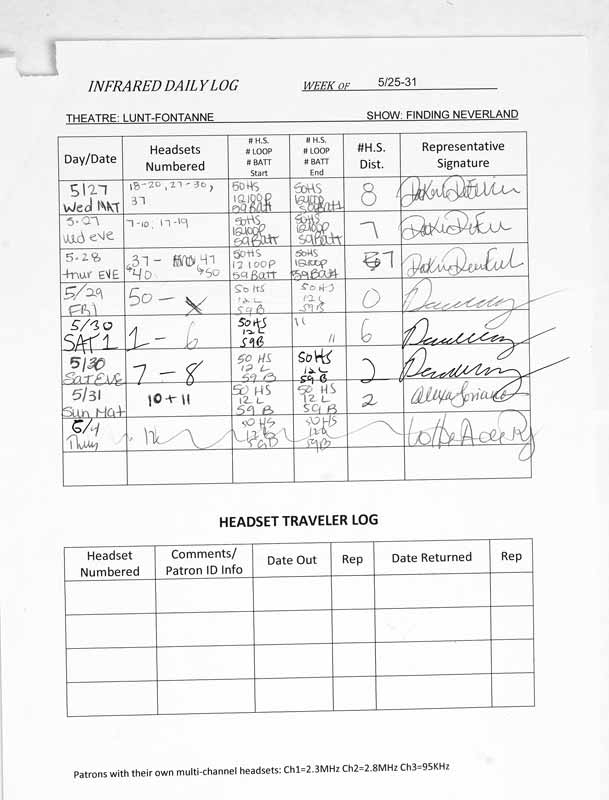 INFRARED DAILY LOG
WEEK OF 5/25-31
THEATRE: LUNT-FONTANNE
SHOW: FINDING NEVERLAND
Day/Date
Headsets Numbered
# H.S. # LOOP # BATT Start
# H.S. # LOOP # BATT End
#H.S. Dist.
Representative Signature
5/27 Wed MAT
18-20, 27-30, 37
50HS 12LOOP 59Batt
50HS 12LOOP 59Batt
8
5-27 wed eve
7-10, 17-19
50HS 12LOOP 59Batt
50HS 12LOOP 59Batt
7
5-28 thur EVE
37- 40 47 50
50HS 12LOOP 59Batt
50HS 12LOOP 59Batt
7
5/29 FRI
50 -
50HS 12L 59B
50HS 12L 59B
0
5/30 SAT 1
1 - 6
50HS 12L 59B
" "
6
5/30 Sat EVE
7 - 8
50 HS 12 L 59 B
50HS 12L 59B
2
5/31 Sun Mat
10 + 11
50 HS 12 L 59 B
50 HS 12 L 59 B
2
Alexa Soriano
6/4 Thurs
50 HS 12L 59B
50 HS 12L 59B
HEADSET TRAVELER LOG
Headset Numbered
Comments/ Patron ID Info
Date Out
Rep
Date Returned
Rep
Patrons with their own multi-channel headsets: Ch1=2.3MHz Ch2=2.8MHz Ch3=95KHz